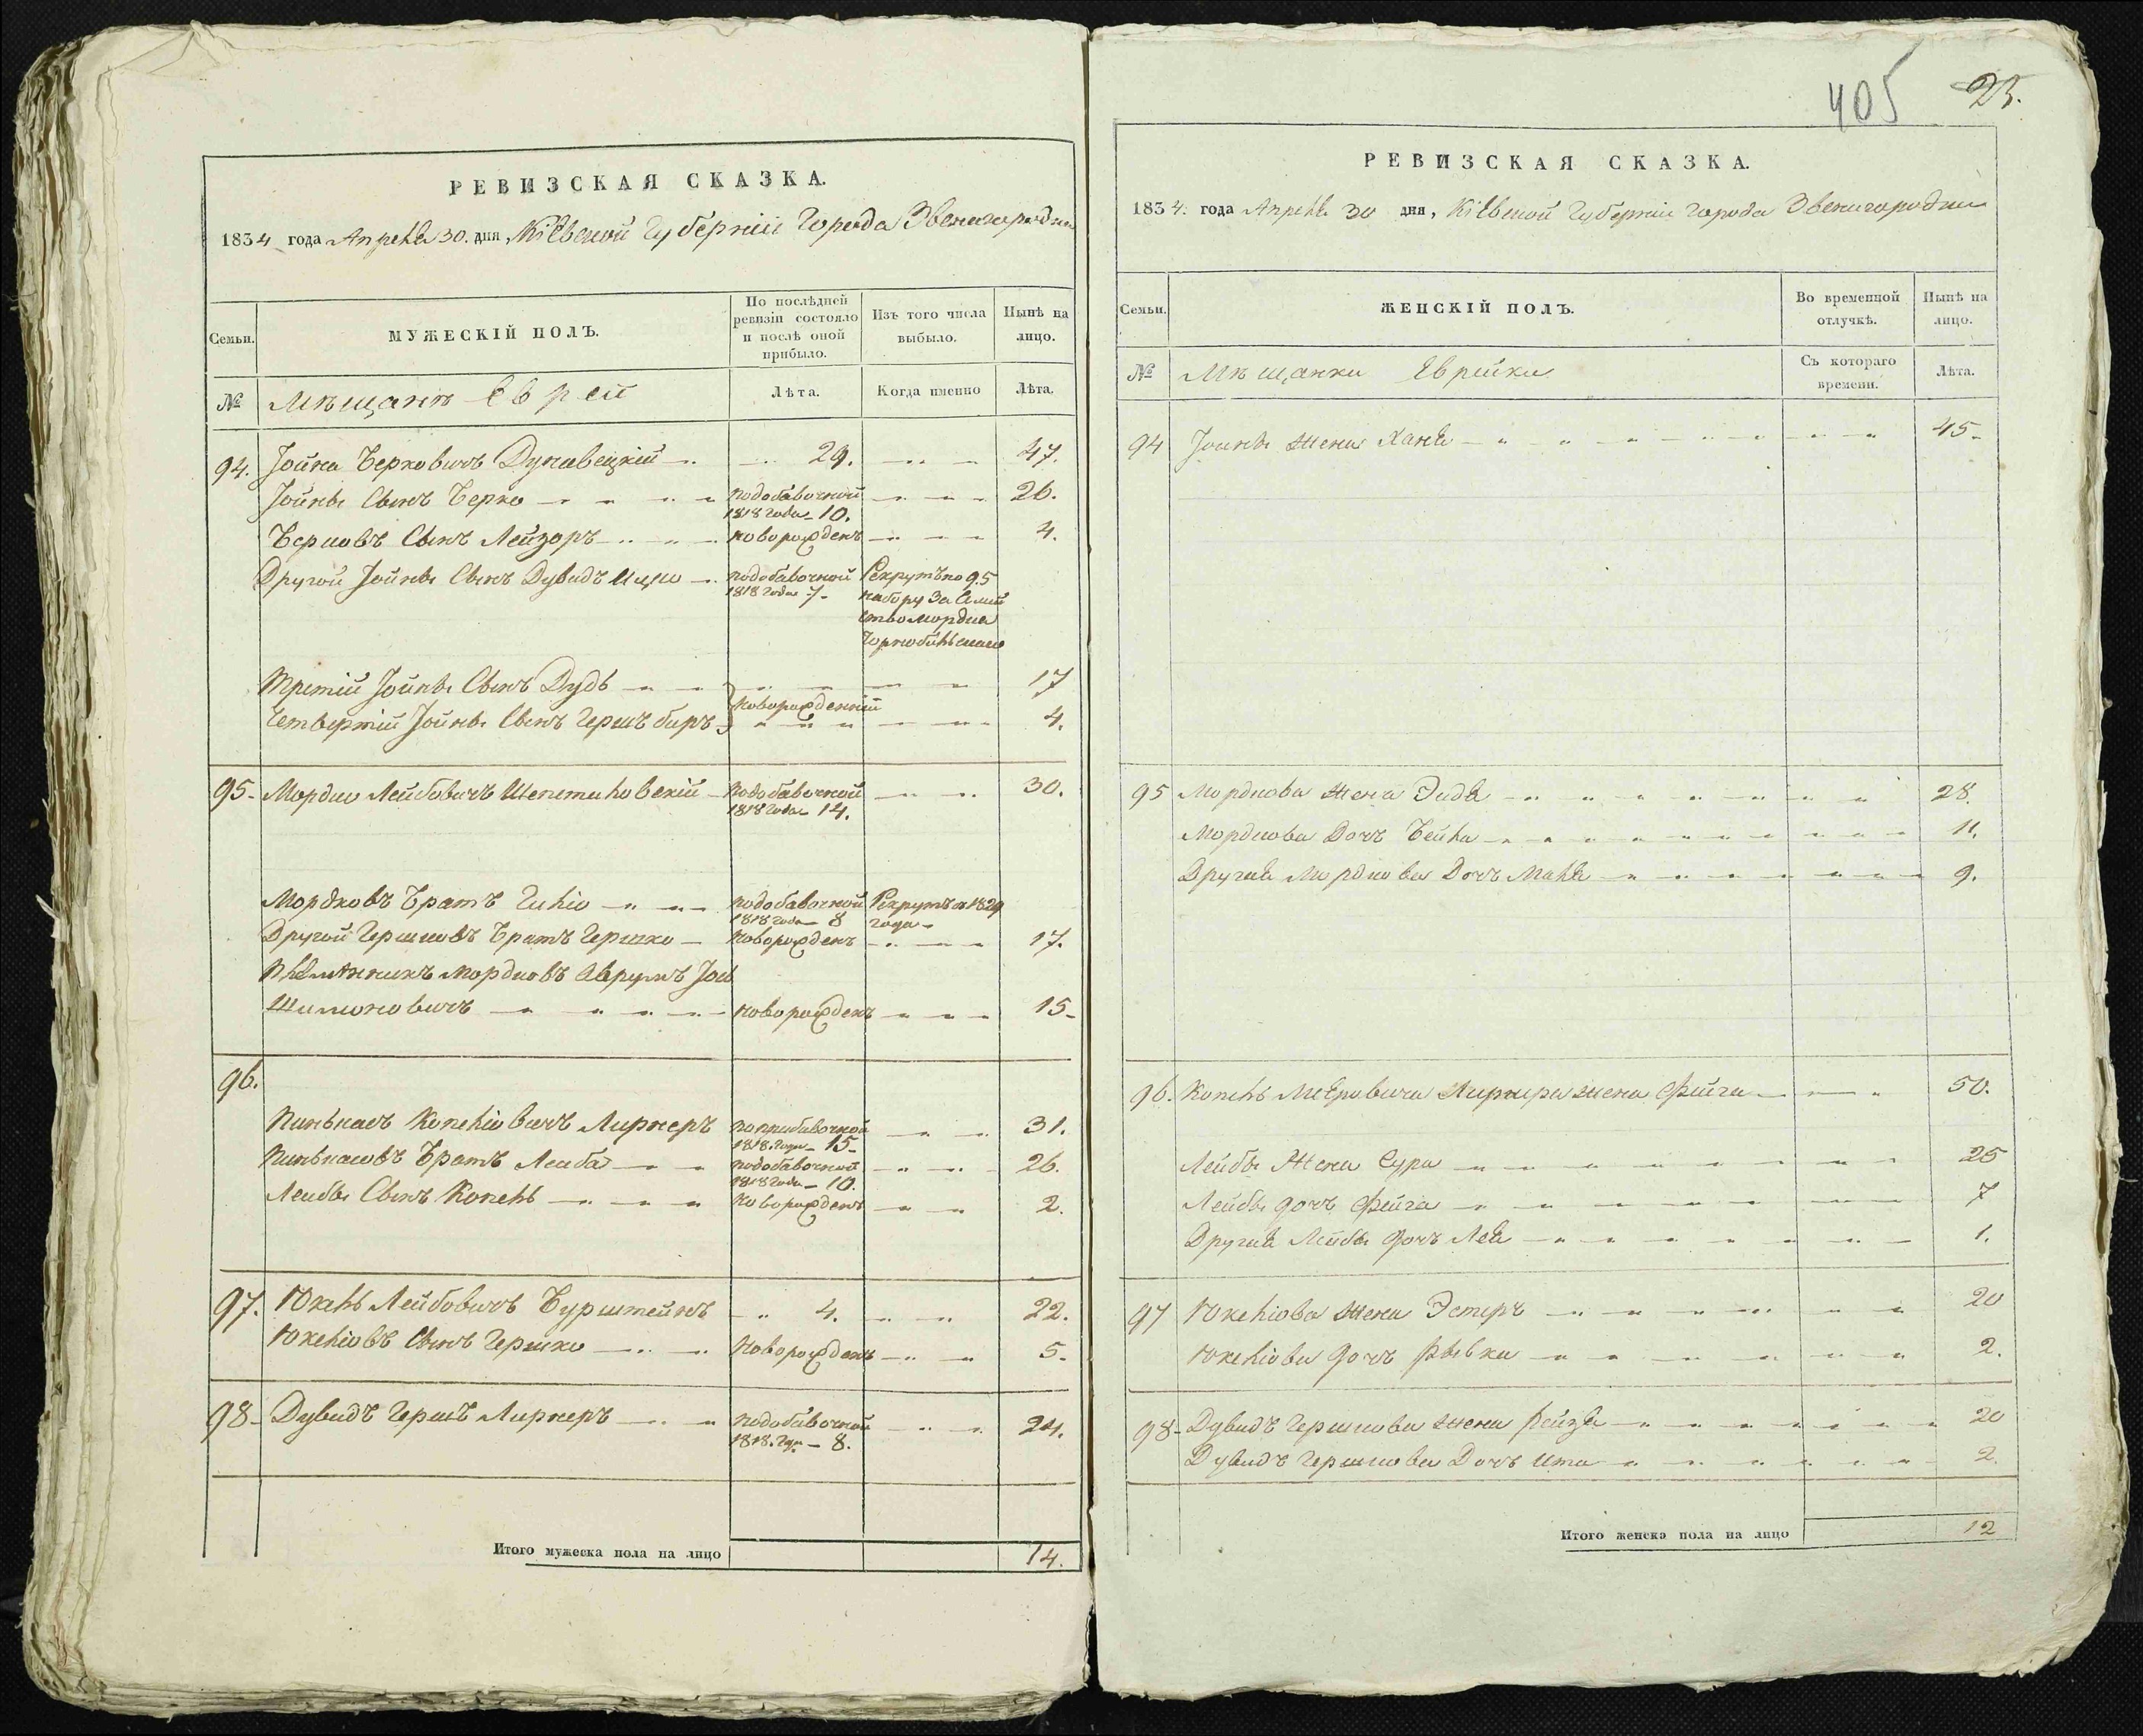 РЕВИЗСКАЯ СКАЗКА.
1834 года Апреля 30. дня, Кіевской Губерніи Города Звенигородки
Семьи.
МУЖЕСКІЙ ПОЛЪ.
По послѣдней ревизіи состояло и послѣ оной прибыло.
Изъ того числа выбыло.
Нынѣ на лицо.
№
Мѣщанѣ Еврей
Лѣта.
Когда именно
Лѣта.
94. Іойна Берковичъ Дунавецкій 29. 47.
Іойны Сынъ Берко подобавочной 26.
1818 года 10.
Берковъ Сынъ Лейзоръ новорожденъ 4.
Другой Іойны Сынъ Дувидъ Ицко подобавочной Рекрутъ по 95
1818 года 7. набору за
Мордка
Третій Іойны Сынъ Дудь 17
новорожденній
Четвертій Іойны Сынъ Гершъ беръ 4.
95. Мордко Лейбовичъ подобавочной 30.
1818 года 14.
Мордковъ Братъ подобавочной Рекрутъ 1829
1818 года 8 года
Другой Гершковъ Братъ Гершко новорожденъ 17.
Племянникъ Мордковъ Аврумъ Іось
Шимоновичъ новорожденъ 15
96.
Пинькасъ Копеліовичъ Лирнеръ поприбавочной 31.
1818. года 15
Пинькасовъ Братъ Лейба подобавочной 26.
1818 года 10.
Лейбы Сынъ Копель новорожденъ 2.
97. Юкель Лейбовичъ Бурштейнъ 4. 22.
Юкеліовъ Сынъ Гершко Новорожденъ 5.
98 Дувидъ Гершъ Лирнеръ подобавочной 24.
1818. года 8.
Итого мужеска пола на лицо 14.
405 25.
РЕВИЗСКАЯ СКАЗКА.
1834. года Апреля 30 дня, Кіевской Губерніи Города Звенигородки
Семьи.
ЖЕНСКІЙ ПОЛЪ.
Во временной отлучкѣ.
Нынѣ на лицо.
№
Мѣщанки Еврейки
Съ котораго времени.
Лѣта.
94 Іойны жена Хана 45
95 Мордкова жена Эйдя 28.
Мордкова Дочъ Бейла 11.
Другая Мордкова Дочъ Маля 9.
96. Копель Меѣровича Лирнера жена Фейга 50.
Лейбы Жена Сура 25
Лейбы дочъ Фейга 7
Другая Лейбы дочъ Лея 1.
97 Юкеліова жена Эстеръ 20
Юкеліова дочъ Рывка 2.
98 Дувидъ Гершкова жена Рейзя 20
Дувидъ Гершкова Дочъ Ита 2.
Итого женска пола на лицо 12